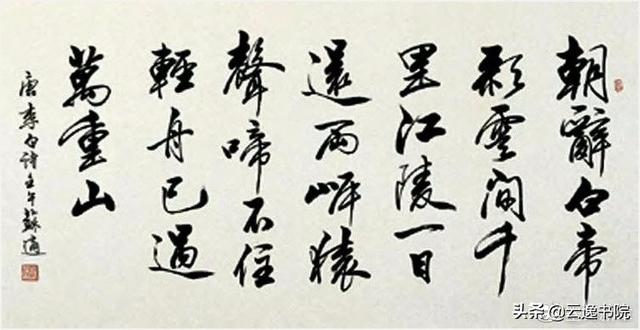 朝辭白帝
彩雲間千
里江陵一日
還兩岸猿
聲啼不住
輕舟已過
萬重山
唐李白詩壬午蘇適
头条 @云逸书院